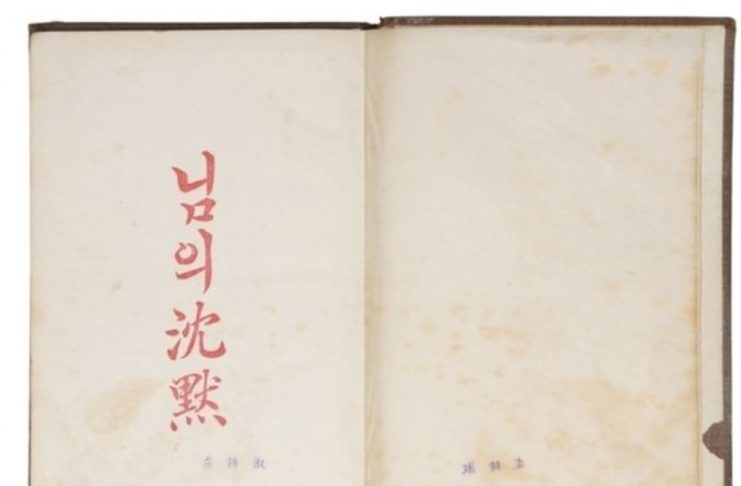 님의 沈默